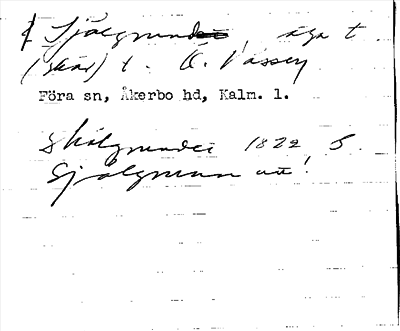 Själgrundet, äga t.
(skär) t. Ö. Vässby
Föra sn, Åkerbo hd, Kalm. l.
Skälgrundet 1822 S.
Själgrunn utt!